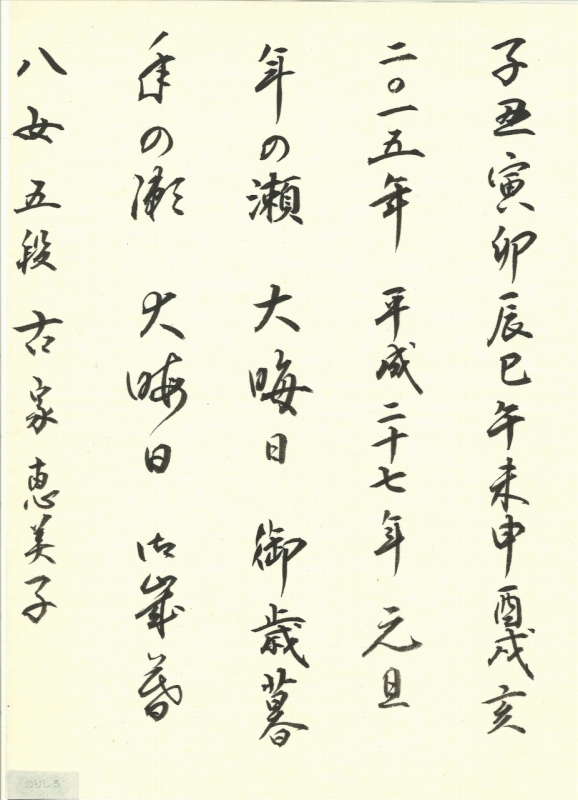 子丑寅卯辰巳午未申酉戌亥
二〇一五年 平成二十七年 元旦
年の瀬 大晦日 御歳暮
年の瀬 大晦日 御歳暮
八女 五段 古家恵美子
のりしろ